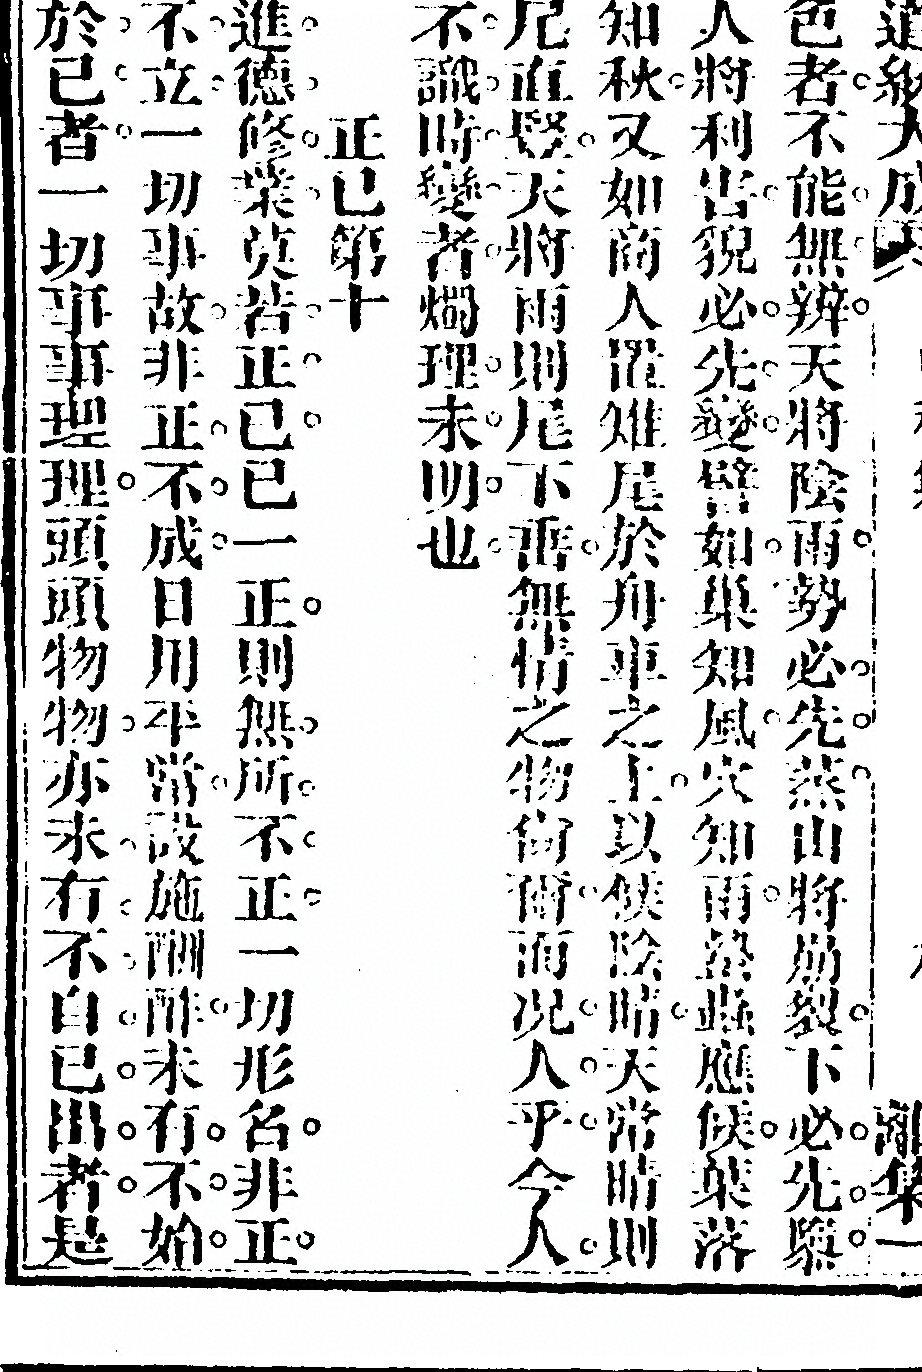 道統大成 離集一
色者不能無辨天將陰雨勢必先蒸山將崩裂下必先隳
人將利害貌必先變譬如巢知風穴知雨蟄蟲應候葉落
知秋又如商人置雉尾於舟車之上以候陰晴天常晴則
尾直豎天將雨則尾下垂無情之物尙爾而況人乎今人
不識時變者燭理未明也
正已第十
進德修業莫若正已已一正則無所不正一切形名非正
不立一切事故非正不成日用平常設施酬酢未有不始
於已者一切事事理理頭頭物物亦未有不自已出者是